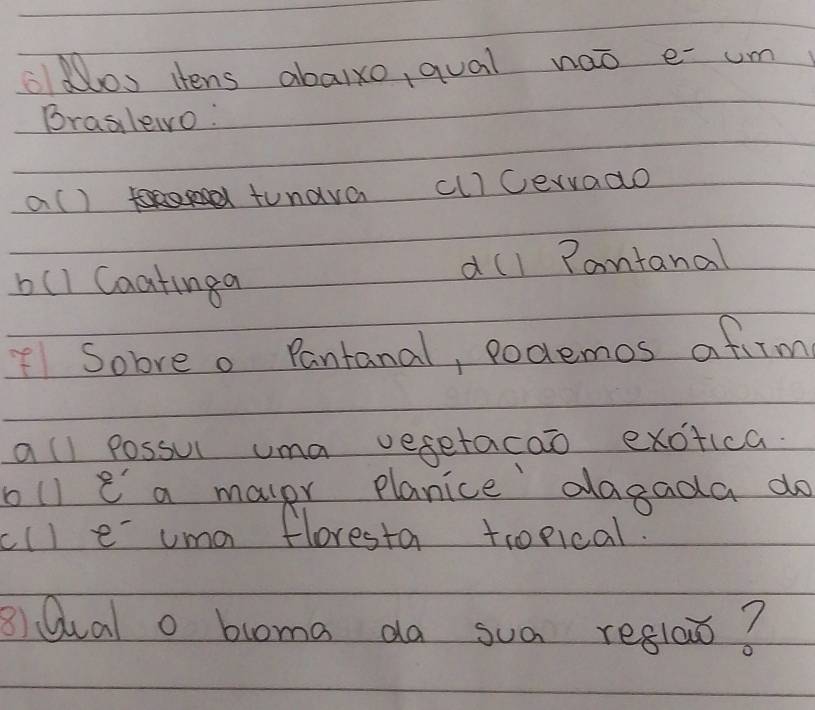 6) Nos itens abaixo, qual não é um
Brasileiro:
a() tundra c() Cerrado
b() Caatinga d() Pantanal
7) Sobre o Pantanal, podemos afirm
a() Possui uma vegetacão exótica.
b() é a maior planice alagada do
c() é uma floresta tropical.
8) Qual o bioma da sua região?